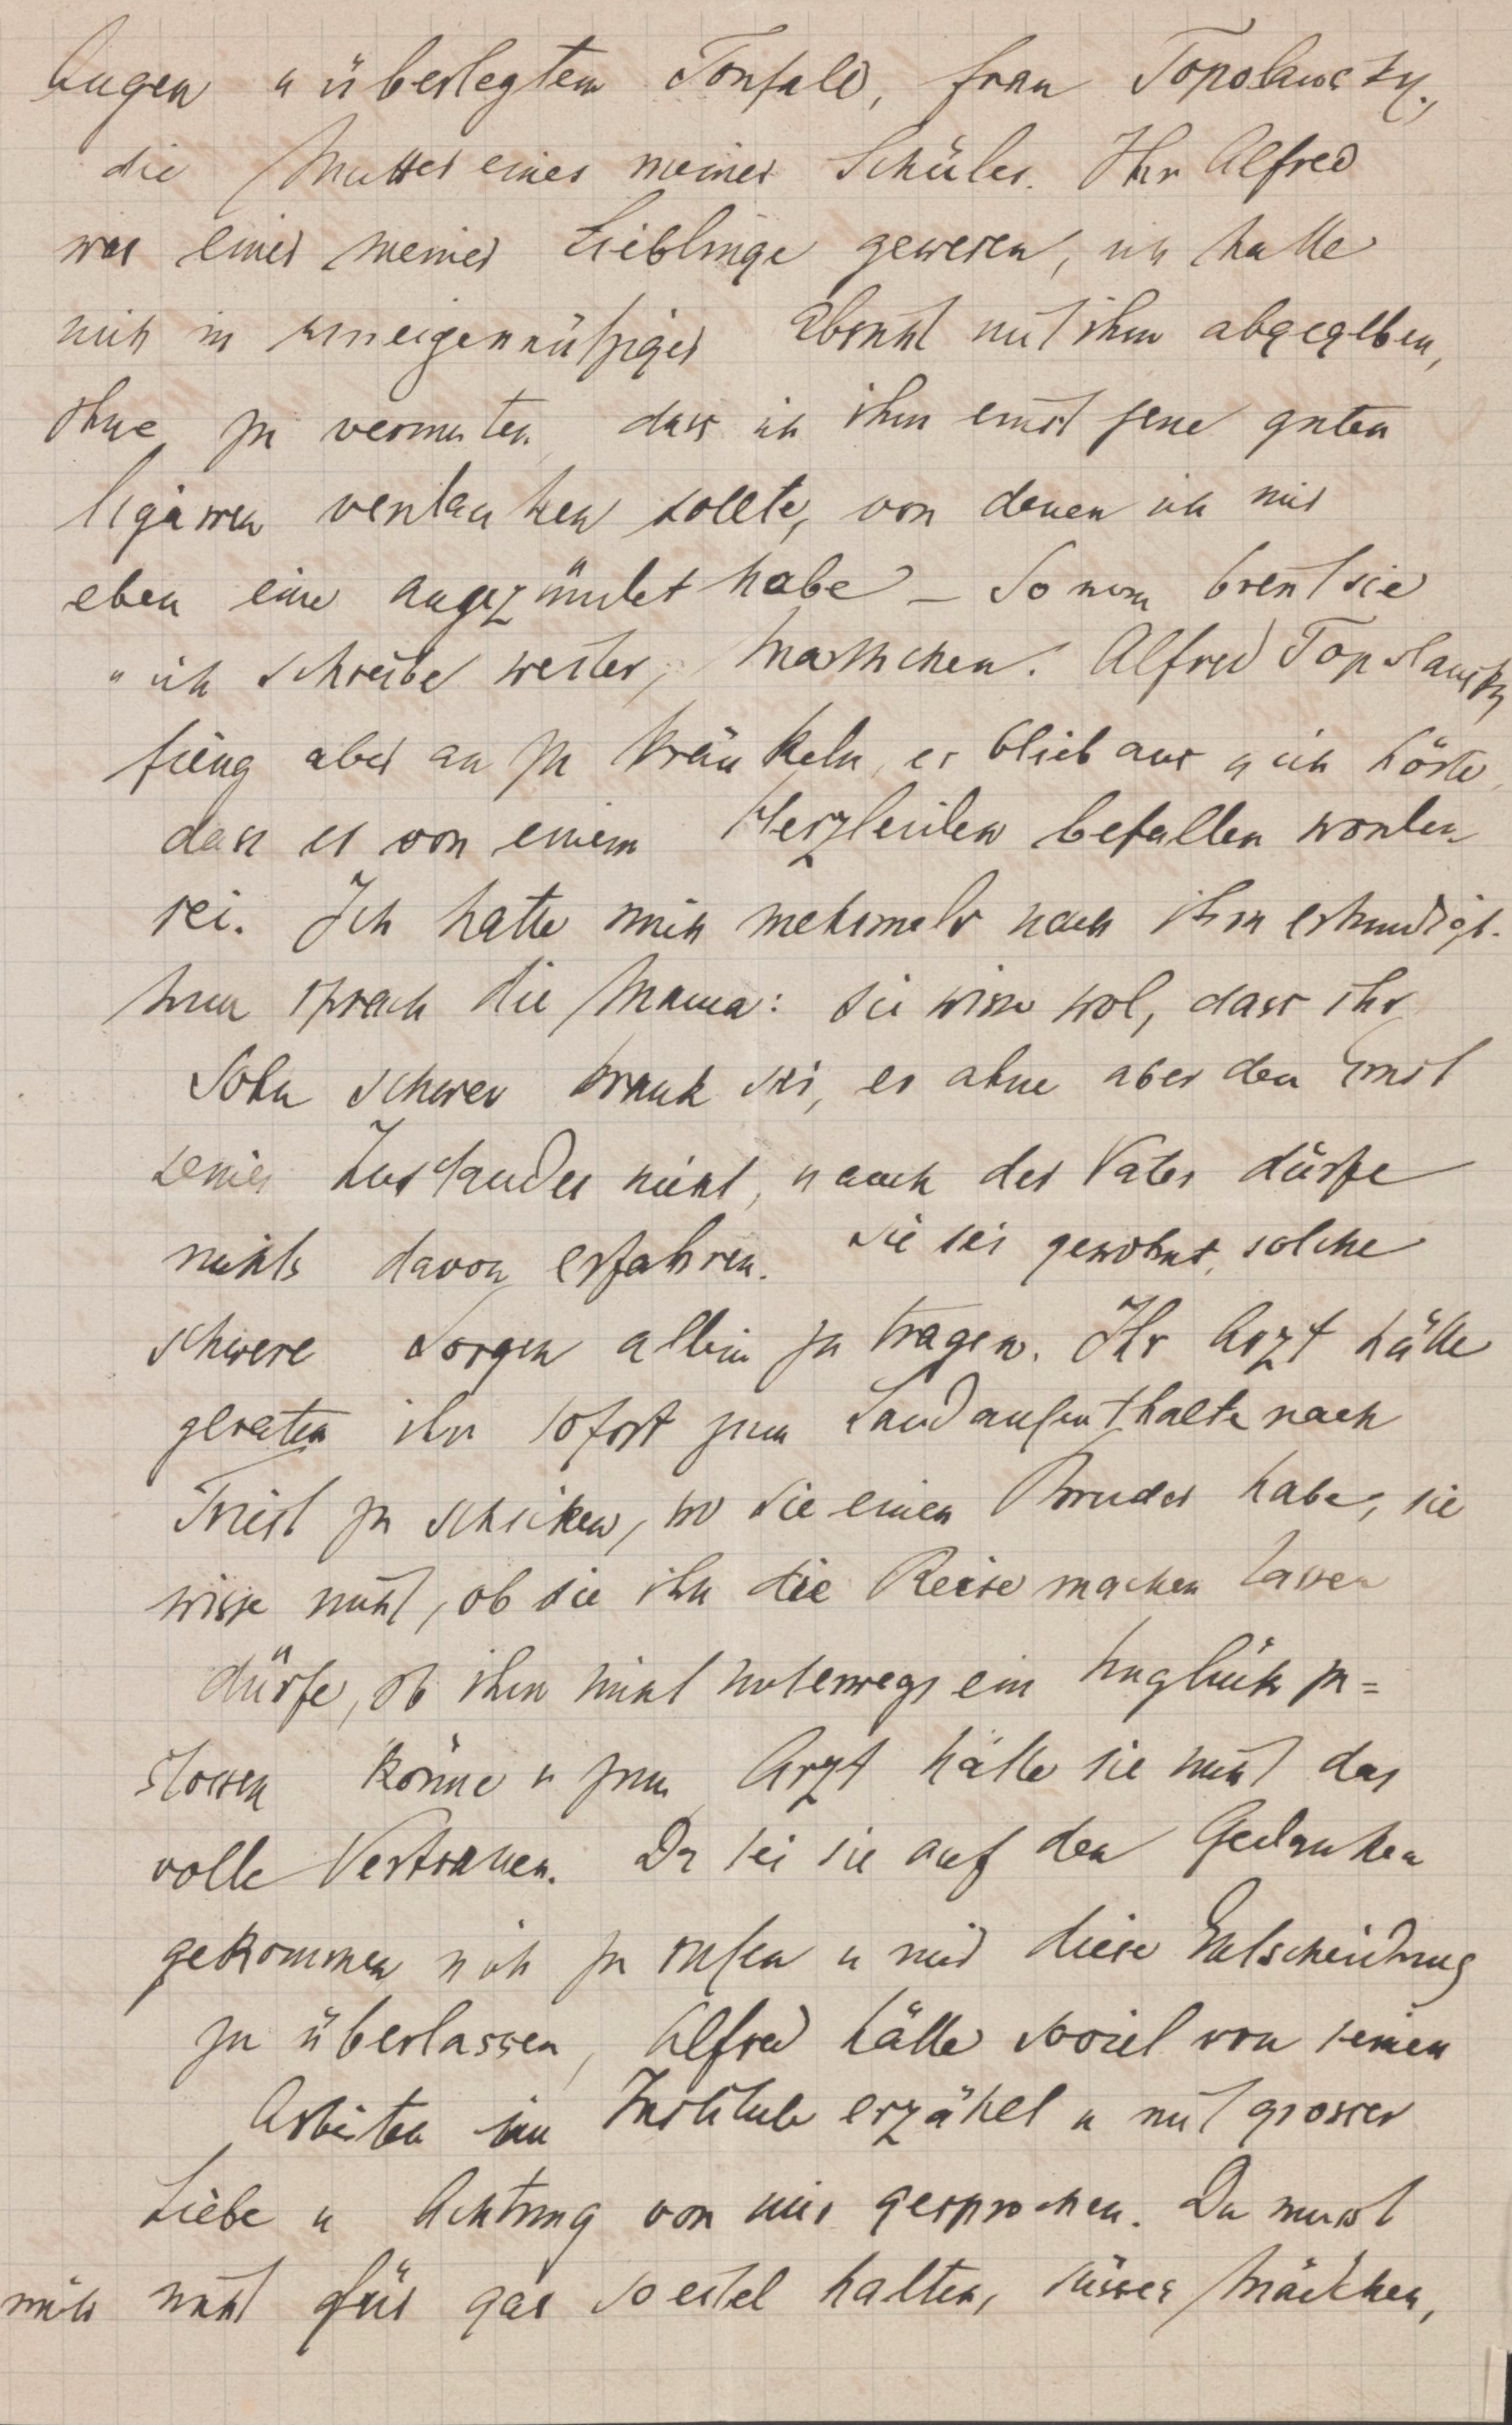 Augen u überlegtem Tonfall, Frau Topolansky,
die Mutter eines meiner Schüler. Ihr Alfred
war einer meiner Lieblinge gewesen, ich hatte
mich in uneigennütziger Absicht mit ihm abgegeben,
ohne zu vermuten, dass ich ihm einst jene guten
Cigarren verdanken sollte, von denen ich mir
eben eine angezündet habe – So nun brent sie
u ich schreibe weiter, Marthchen. Alfred Topolansky
fieng aber an zu kränkeln, er blieb aus u ich hörte,
dass er von einem Herzleiden befallen worden
sei. Ich hatte mich mehrmals nach ihm erkundigt.
Nun sprach die Mama: Sie wisse wol, dass ihr
Sohn schwer krank sei, er ahne aber den Ernst
seines Zustandes nicht, u auch der Vater dürfe
nichts davon erfahren. Sie sei gewohnt, solche
schwere Sorgen allein zu tragen. Ihr Arzt hätte
geraten ihn sofort zum Landaufenthalte nach
Triest zu schicken, wo sie einen Bruder habe, sie
wisse nicht, ob sie ihn die Reise machen lassen
dürfe, ob ihm nicht unterwegs ein Unglück zu=
stossen könne u zum Arzt hätte sie nicht das
volle Vertrauen. Da sei sie auf den Gedanken
gekommen mich zu rufen u mir diese Entscheidung
zu überlassen, Alfred hätte soviel von seinen
Arbeiten im Institute erzählt u mit grosser
Liebe u Achtung von mir gesprochen. Du musst
mich nicht für gar so eitel halten, süsses Mädchen,